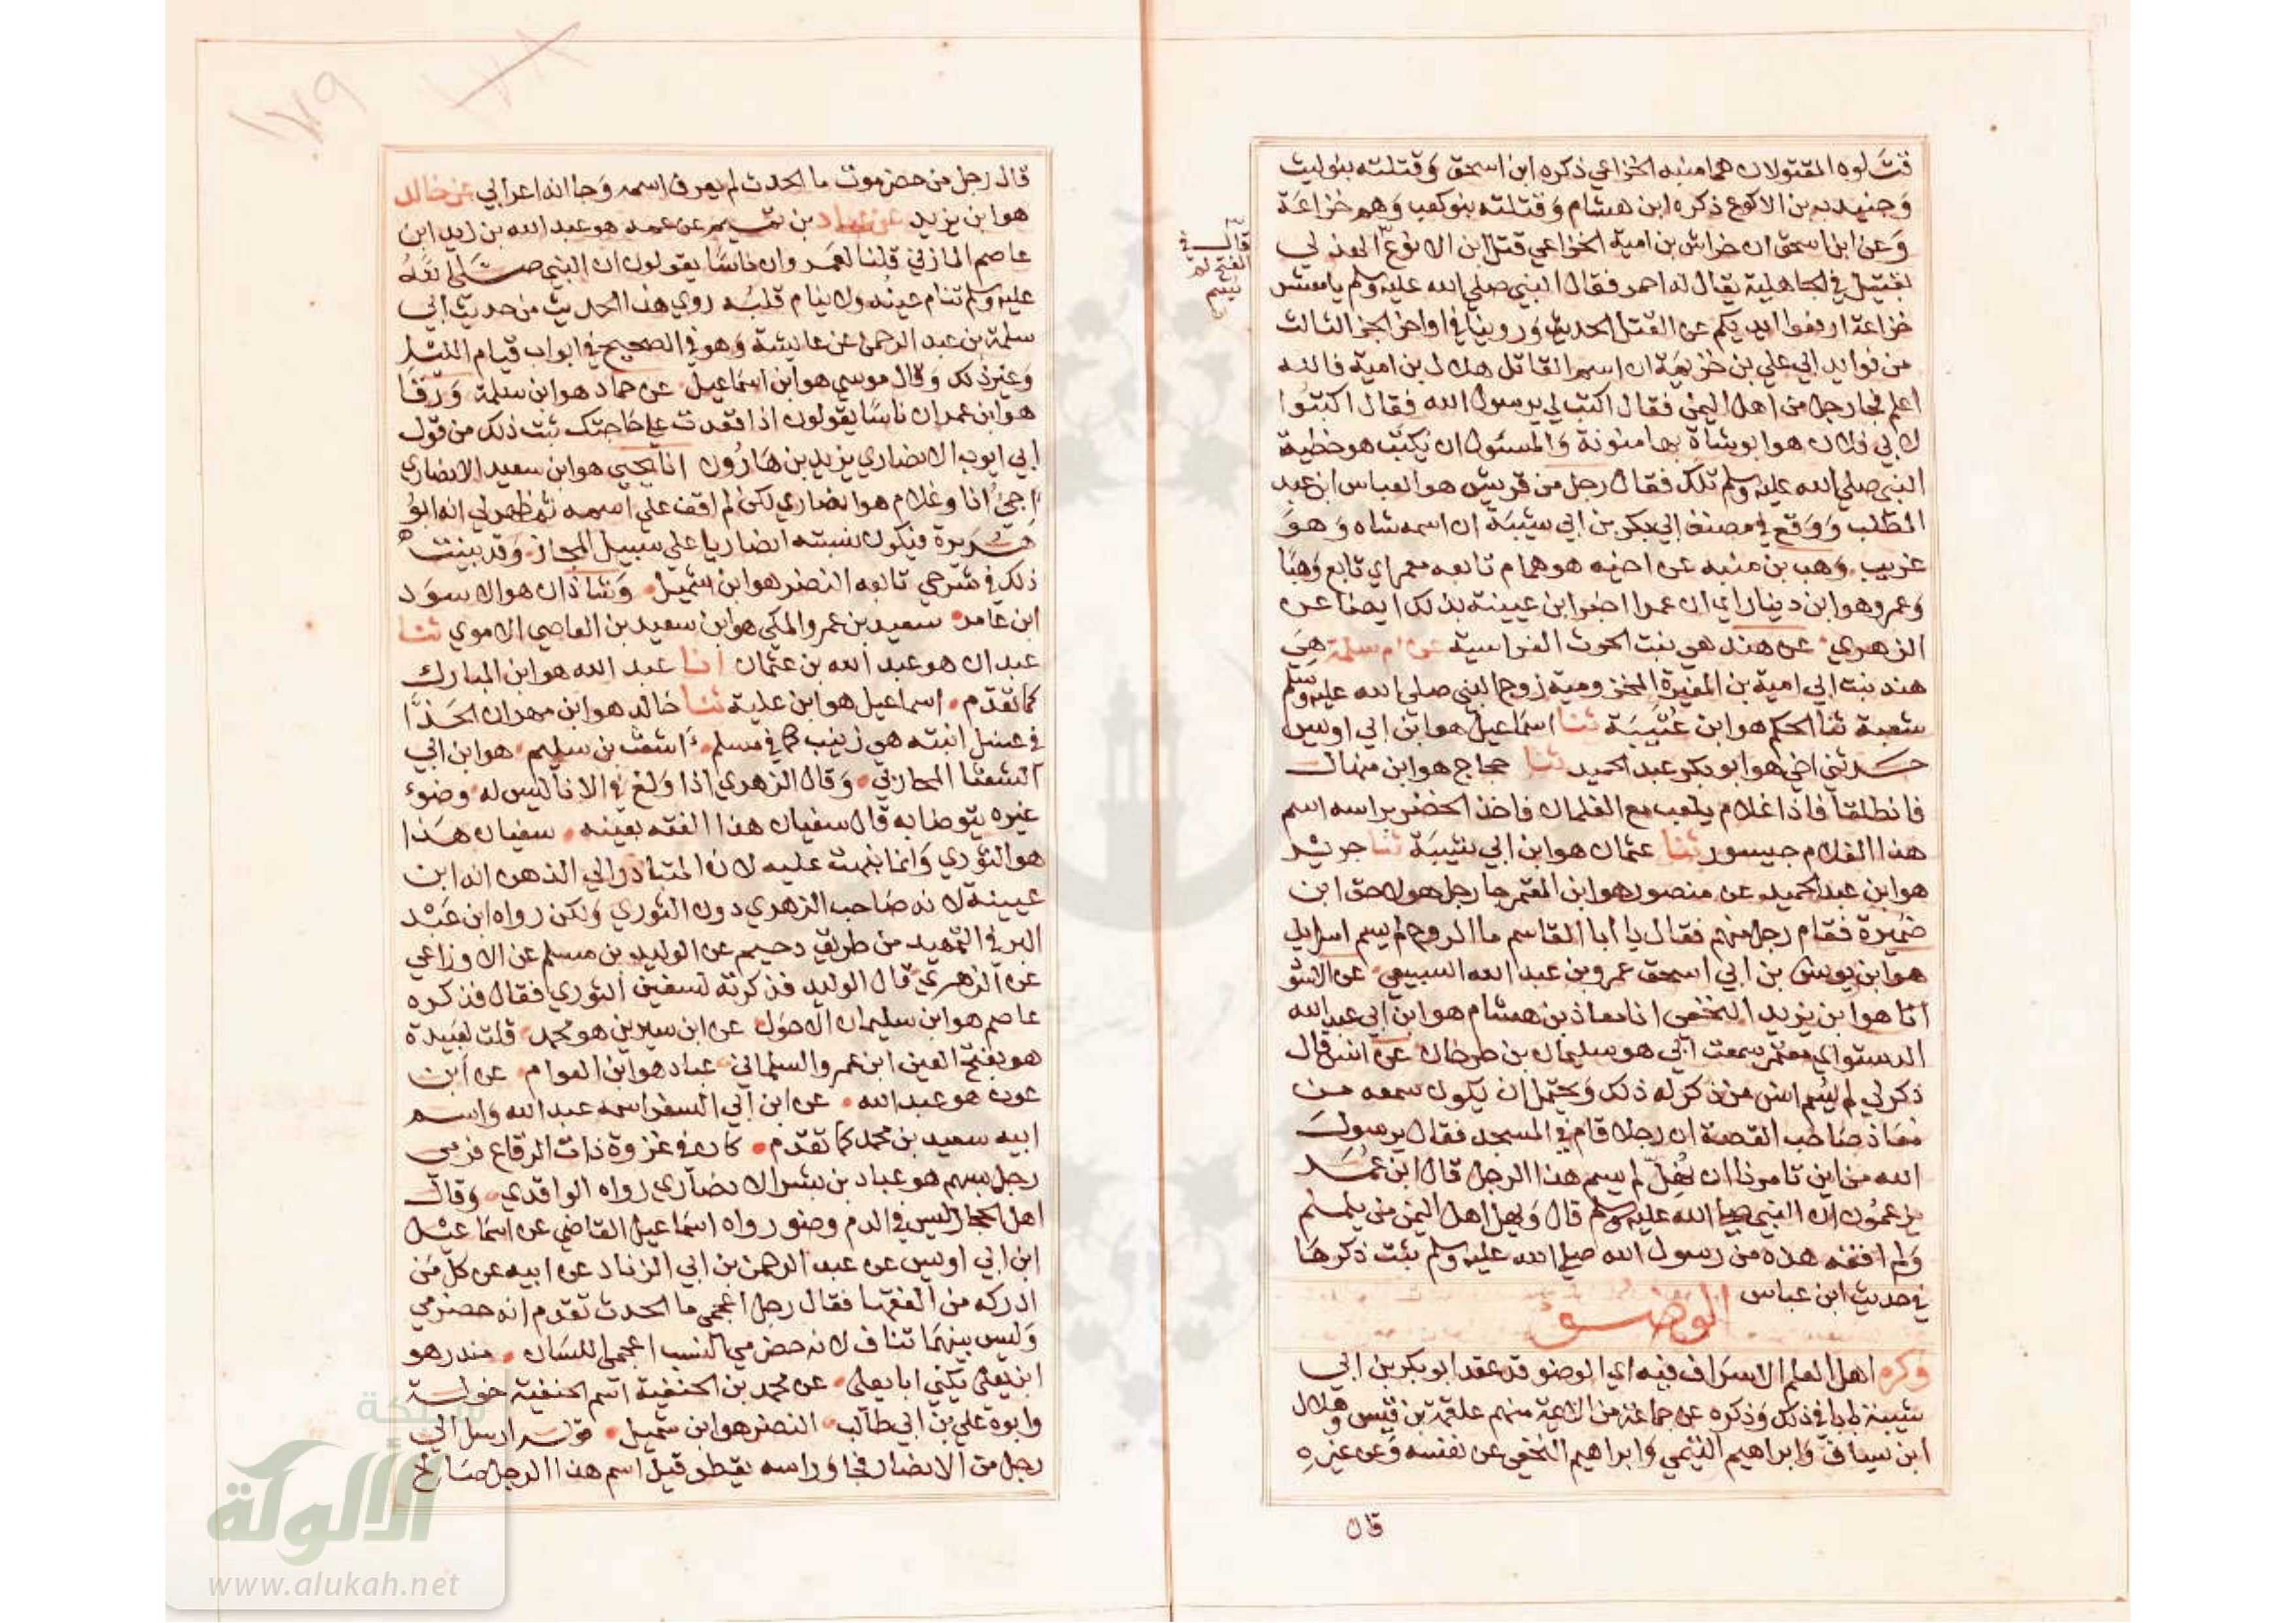 قتلوه المقتولان هما منبه الخزاعي ذكره ابن اسحق وقتلته بنو ليث
وجنيدب بن الاكوع ذكره ابن هشام وقتلته بنو كعب وهم خزاعة
وعن ابن اسحق ان خراش بن امية الخزاعي قتل ابن الاثوع الهذلي
بقتيل في الجاهلية يقال له احمر فقال النبي صلى الله عليه وسلم يا معشر
خزاعة ارفعوا ايديكم عن القتل الحديث وروينا في اواخر الجز الثالث
من فوايد ابي علي بن خزيمة ان اسم القاتل هلال بن امية فالله
اعلم فجا رجل من اهل اليمن فقال اكتب لي يرسول الله فقال اكتبوا
لابي فلان هو ابو شاة بها منونة والمسئول ان يكتب هو خطبة
النبي صلى الله عليه وسلم تلك فقال رجل من قريش هو العباس ابن عبد
المطلب ووقع في مصنف ابي بكر بن ابي شيبة ان اسمه شاه وهو
غريب وهب بن منبه عن اخيه هو همام تابعه معمر اي تابع وهبا
وعمرو هو ابن دينار اي ان عمرا اخبر ابن عيينة بذلك ايضا عن
الزهري عن هند هي بنت الحرث الفراسية عن ام سلمة هي
هند بنت ابي امية بن المغيرة المخزومية زوج النبي صلى الله عليه وسلم
شعبة ثنا الحكم هو ابن عتيبة ثنا اسماعيل هو ابن ابي اويس
حدثني اخي هو ابو بكر عبد الحميد ثنا حجاج هو ابن منهال
فانطلقا فاذا غلام يلعب مع الغلمان فاخذ الخضر براسه اسم
هذا الغلام جيسور ثنا عثمان هو ابن ابي شيبة ثنا جرير
هو ابن عبد الحميد عن منصور هو ابن المعتمر جا رجل هو لاحق ابن
ضميرة فقام رجل منهم فقال يا ابا القاسم ما الروح لم يسم اسرايل
هو ابن يونس بن ابي اسحق عمرو بن عبد الله السبيعي عن الاسود
انا هو ابن يزيد النخعي انا معاذ بن هشام هو ابن ابي عبد الله
الدستواي معتمر سمعت ابي هو سليمان بن طرخان عن انس قال
ذكر لي لم يسم انس من ذكر له ذلك ويحتمل ان يكون سمعه من
معاذ صاحب القصة ان رجلا قام في المسجد فقال يرسول
الله من اين تامرنا ان نهل لم يسم هذا الرجل قال ابن عمر
يزعمون ان النبي صلى الله عليه وسلم قال ويهل اهل اليمن من يلملم
ولم افقه هذه من رسول الله صلى الله عليه وسلم ثبت ذكرها
في حديث ابن عباس
الوضوء
وكره اهل العلم الاسراف فيه اي الوضو قد عقد ابو بكر بن ابي
شيبة بابا في ذلك وذكره عن جماعة من الايمة منهم علقمة بن قيس وهلال
ابن يساف وابراهيم التيمي وابراهيم النخعي عن نفسه وعن غيره
قال
قال في
الفتح لم
يسم
قال رجل من حضرموت ما الحدث لم يعرف اسمه وجا انه اعرابي عن خالد
هو ابن يزيد عن عباد بن تميم عن عمه هو عبد الله بن زيد ابن
عاصم المازني قلنا لعمرو ان ناسا يقولون ان النبي صلى الله
عليه وسلم تنام عينه ولا ينام قلبه روي هذا الحديث من حديث ابي
سلمة بن عبد الرحمن عن عايشة وهو في الصحيح في ابواب قيام الليل
وغير ذلك وقال موسى هو ابن اسماعيل عن حماد هو ابن سلمة ورقا
هو ابن عمر ان ناسا يقولون اذا قعدت على حاجتك ثبت ذلك من قول
ابي ايوب الانصاري يزيد بن هارون انا يحيى هو ابن سعيد الانصاري
اجئ انا وغلام هو انصاري لكن لم اقف على اسمه ثم ظهر لي انه ابو
هريرة فيكون نسبته انصاريا على سبيل المجاز وقد بينت
ذلك في شرحي تابعه النضر هو ابن شميل وشاذان هو الاسود
ابن عامر سعيد بن عمرو المكي هو ابن سعيد بن العاصي الاموي ثنا
عبدان هو عبد الله بن عثمان انا عبد الله هو ابن المبارك
كما تقدم اسماعيل هو ابن علية ثنا خالد هو ابن مهران الحذا
في غسل ابنته هي زينب كما في مسلم اشعث بن سليم هو ابن ابي
الشعثا المحاربي وقال الزهري اذا ولغ في الانا ليس له وضوء
غيره يتوضا به قال سفيان هذا الفقه بعينه سفيان هذا
هو الثوري وانما نبهت عليه لان المتبادر الى الذهن انه ابن
عيينة لانه صاحب الزهري دون الثوري ولكن رواه ابن عبد
البر في التمهيد من طريق دحيم عن الوليد بن مسلم عن الاوزاعي
عن الزهري قال الوليد فذكرته لسفين الثوري فقال فذكره
عاصم هو ابن سليمان الاحول عن ابن سيرين هو محمد قلت لعبيدة
هو بفتح العين ابن عمرو السلماني عباد هو ابن العوام عن ابن
عون هو عبد الله عن ابن ابي السفر اسمه عبد الله واسم
ابيه سعيد بن محمد كما تقدم كان في غزوة ذات الرقاع فرمي
رجل بسهم هو عباد بن بشر الانصاري رواه الواقدي وقال
اهل الحجاز ليس في الدم وضو رواه اسماعيل القاضي عن اسماعيل
ابن ابي اويس عن عبد الرحمن بن ابي الزناد عن ابيه عن كل من
ادركه من الفقها فقال رجل اعجمي ما الحدث تقدم انه حضرمي
وليس بينهما تناف لانه حضرمي النسب اعجمي اللسان منذر هو
ابن يعلى يكنى ابا يعلى عن محمد بن الحنفية اسم الحنفية خولة
وابوه علي بن ابي طالب النضر هو ابن شميل قوله ارسل الى
رجل من الانصار فجا وراسه يقطر قيل اسم هذا الرجل صالح
١٧٩
شبكة
الألوكة
www.alukah.net